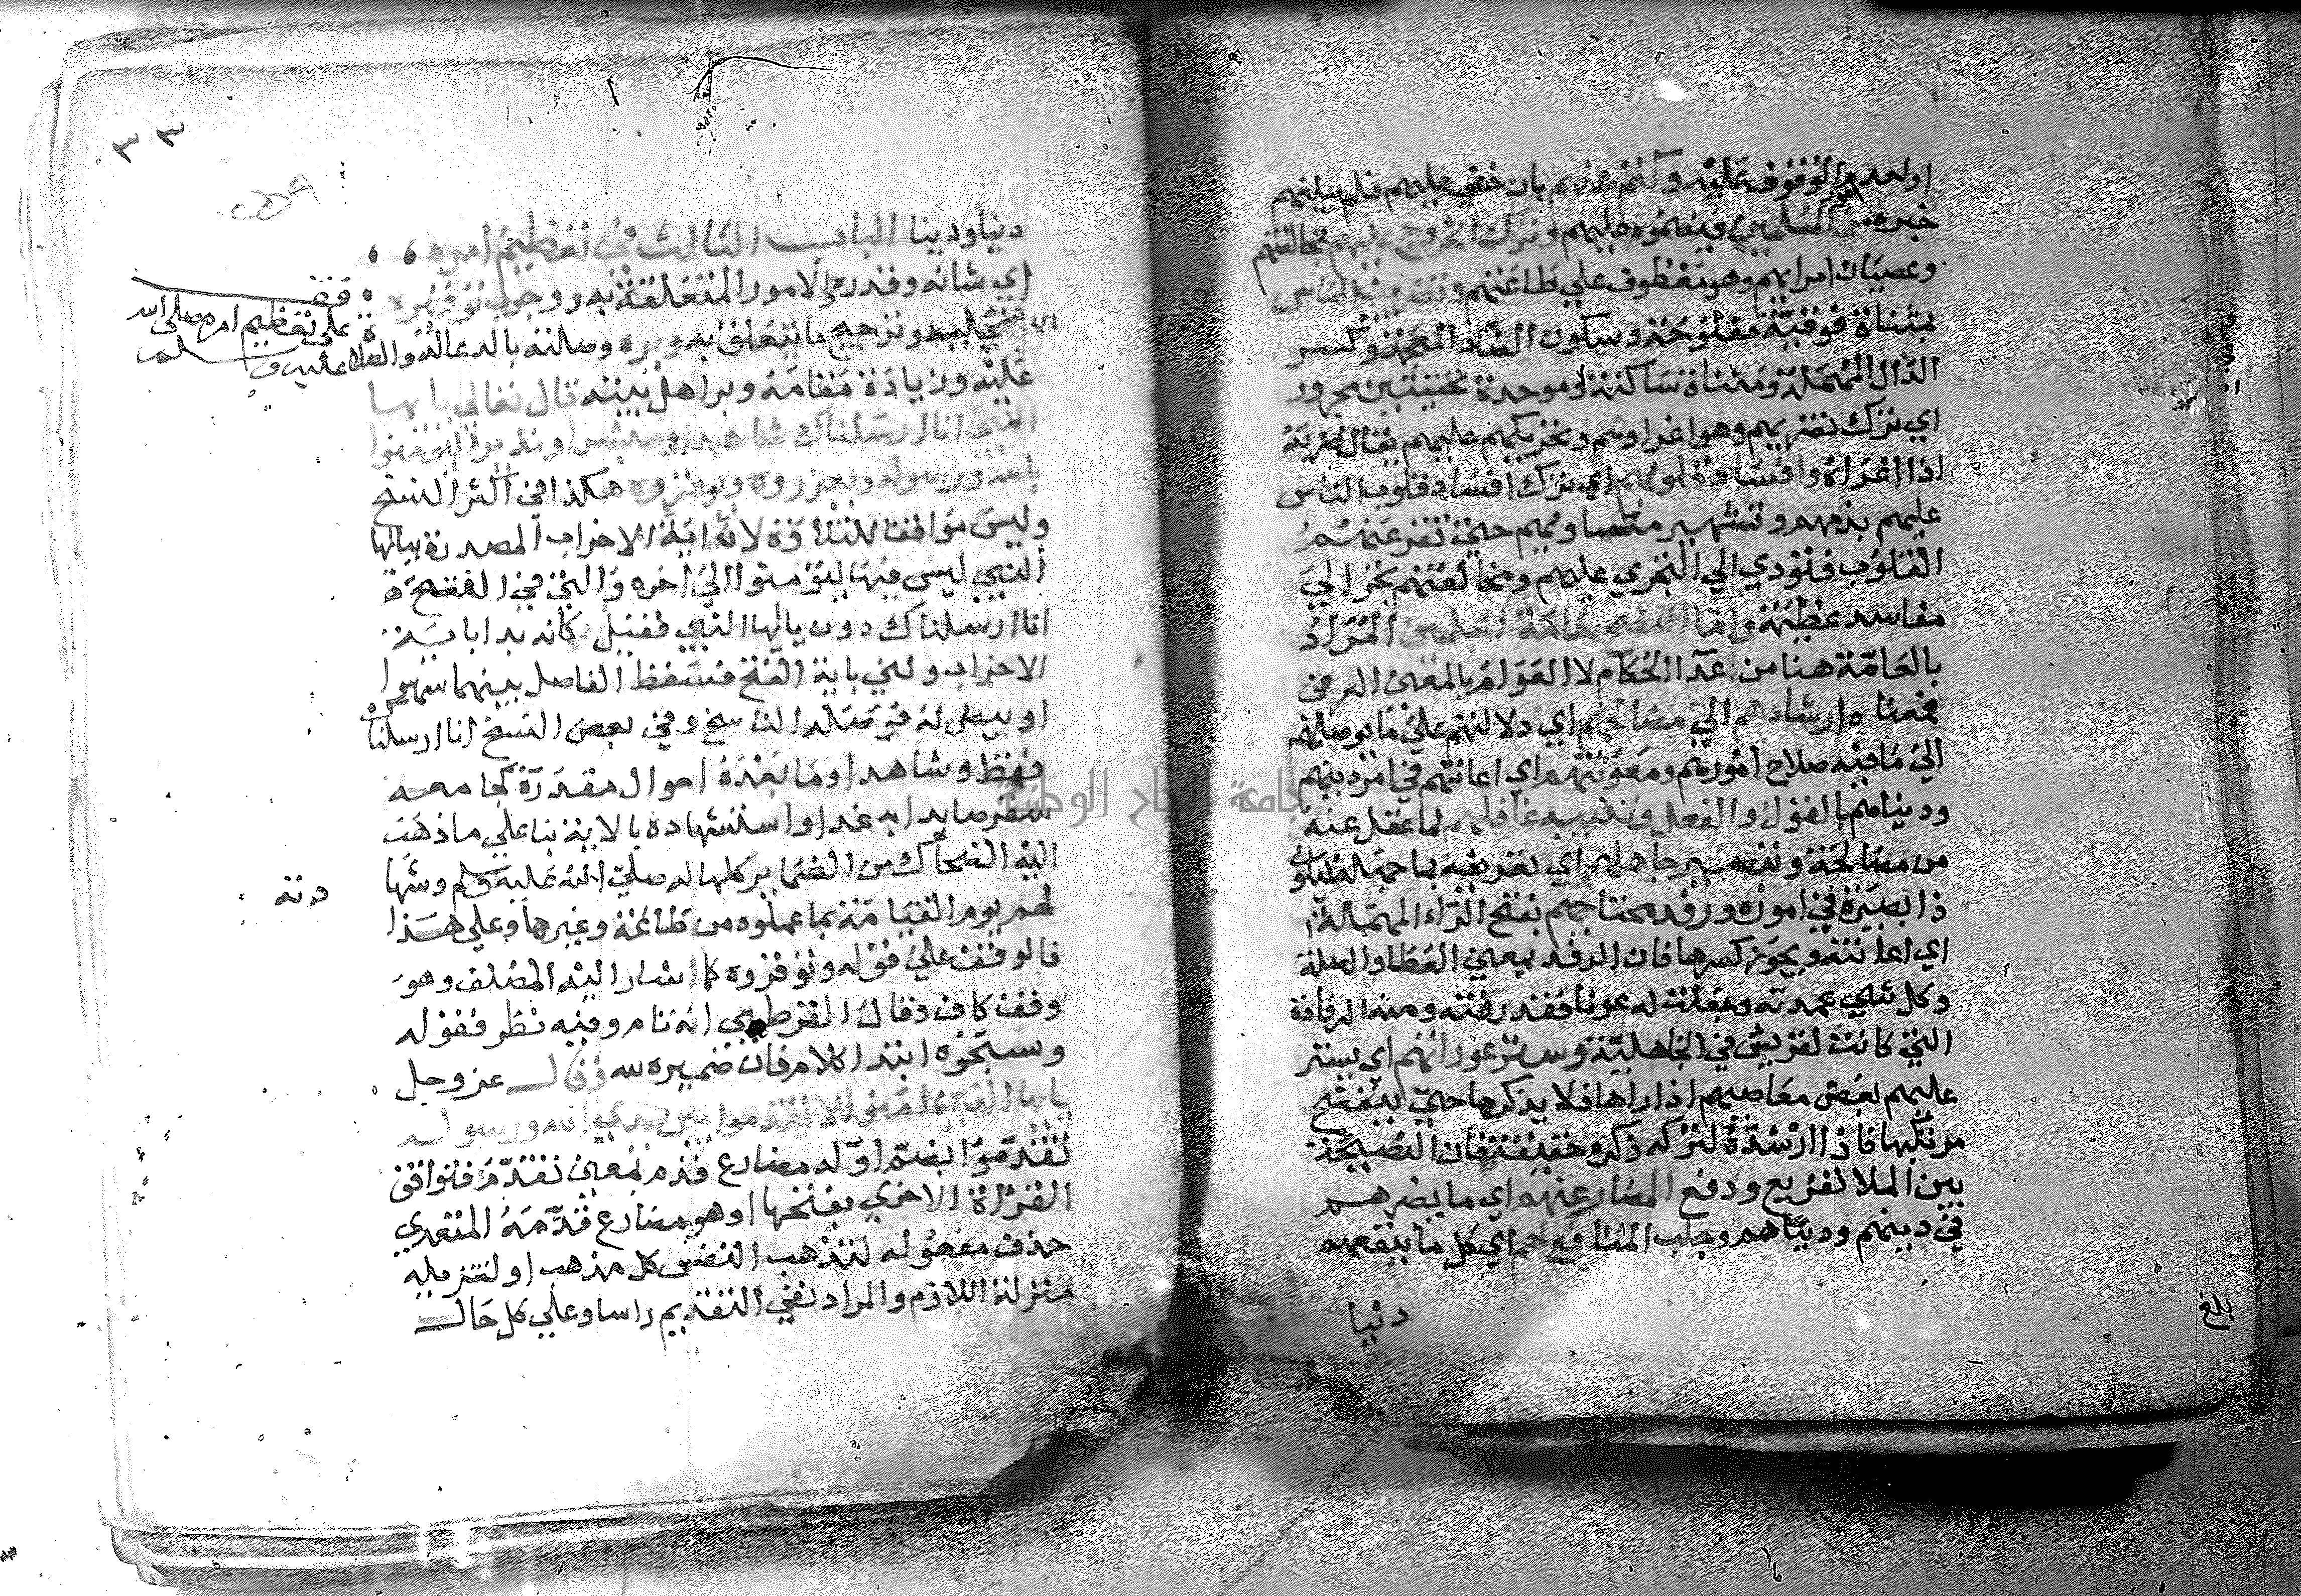 او لعدم الوقوف عليه وكتم عنهم بان خفي عليهم فلم يبلغهم
خبره من امور المسلمين فيعلموه عليهم وترك الخروج عليهم بمخالفتهم
وعصيان امرايهم وهو معطوف علي طاعتهم وتضريب الناس
بمثناة فوقية مفتوحة وسكون الضاد المعجمة وكسر
الدال المهملة ومثناة ساكنة وموحدة تحتيتين مجرور
اي ترك تضريبهم وهو اغراوهم وتحريكهم عليهم يقال ضربه
اذا اغراه وافساد قلوبهم اي ترك افساد قلوب الناس
عليهم بذمهم وتشهير مساويهم حتي تنفر عنهم
القلوب فتودي الي التجري عليهم ومخالفتهم تجر الي
مفاسد عظيمة واما النصح لعامة المسلمين المراد
بالعامة هنا من عدا الحكام لا العوام بالمعني العرفي
فمعناه ارشادهم الي مصالحهم اي دلالتهم علي ما يوصلهم
الي ما فيه صلاح امورهم ومعونتهم اي اعانتهم في امر دينهم
ودنياهم بالقول والفعل وتنبيه غافلهم لما غفل عنه
من مصالحه وتبصير جاهلهم اي تعريفه بما جهله ليكون
ذا بصيرة في اموره ورفد محتاجهم بفتح الراء المهملة
اي اعانته ويجوز كسرها فان الرفد بمعني العطا والصلة
وكل شي عمدته وجعلت له عونا فقد رفدته ومنه الرفادة
التي كانت لقريش في الجاهلية وستر عوراتهم اي يستر
عليهم بعض معاصيهم اذا راها فلا يذكرها حتي يفتضح
مرتكبها فاذا ارشده لتركه ذكره خفية فان النصيحة
بين الملا تقريع ودفع المضار عنهم اي ما يضرهم
في دينهم ودنياهم وجلب المنافع لهم اي كل ما ينفعهم
دنيا
بلغ
٣٣
دنيا ودينا الباب الثالث في تعظيم امره
اي شانه وقدره والامور المتعلقة به ووجوب توقيره
اي تبجيله وترجيح ما يتعلق به وبره وصلته بالدعاله والصلاة
عليه وزيادة مقامه وبر اهل بيته قال تعالي يا ايها
النبي انا ارسلناك شاهدا ومبشرا ونذيرا لتؤمنوا
بالله ورسوله وتعزروه وتوقروه هكذا في اكثر النسخ
وليس موافقا للتلاوة لانه اية الاحزاب المصدرة بيايها
النبي ليس فيها لتؤمنوا الي اخره والتي في الفتح
انا ارسلناك دون يا ايها النبي فقيل كانه بدا باية
الاحزاب وثني باية الفتح فسقط الفاصل بينهما سهوا
او بيض له فوصله الناسخ وفي بعض النسخ انا ارسلناك
فقط وشاهدا وما بعده احوال مقدرة كجا معه
صقر صايدا به غدا واستشهاده بالاية بنا علي ما ذهب
اليه الضحاك من الضماير كلها له صلي الله عليه وسلم وشها
لهم يوم القيامة بما عملوه من طاعة وغيرها وعلي هذا
فالوقف علي قوله وتوقروه كما اشار اليه المصنف وهو
وقف كاف وقال القرطبي انه تام وفيه نظر فقوله
وسبحوه ابتدا كلام فان ضميره لله وقال عز وجل
يا ايها الذين امنوا لا تقدموا بين يدي الله ورسوله
تقدموا بضم اوله مضارع قدم بمعني تقدم فتوافق
القراة الاخري بفتحها او هو مضارع قدمه المتعدي
حذف مفعوله لتذهب النفس كل مذهب او لتنزيله
منزلة اللازم والمراد نفي التقديم راسا وعلي كل حال
علي تعظيم امره صلي الله
عليه وسلم
دته
جامعة النجاح الوطنية